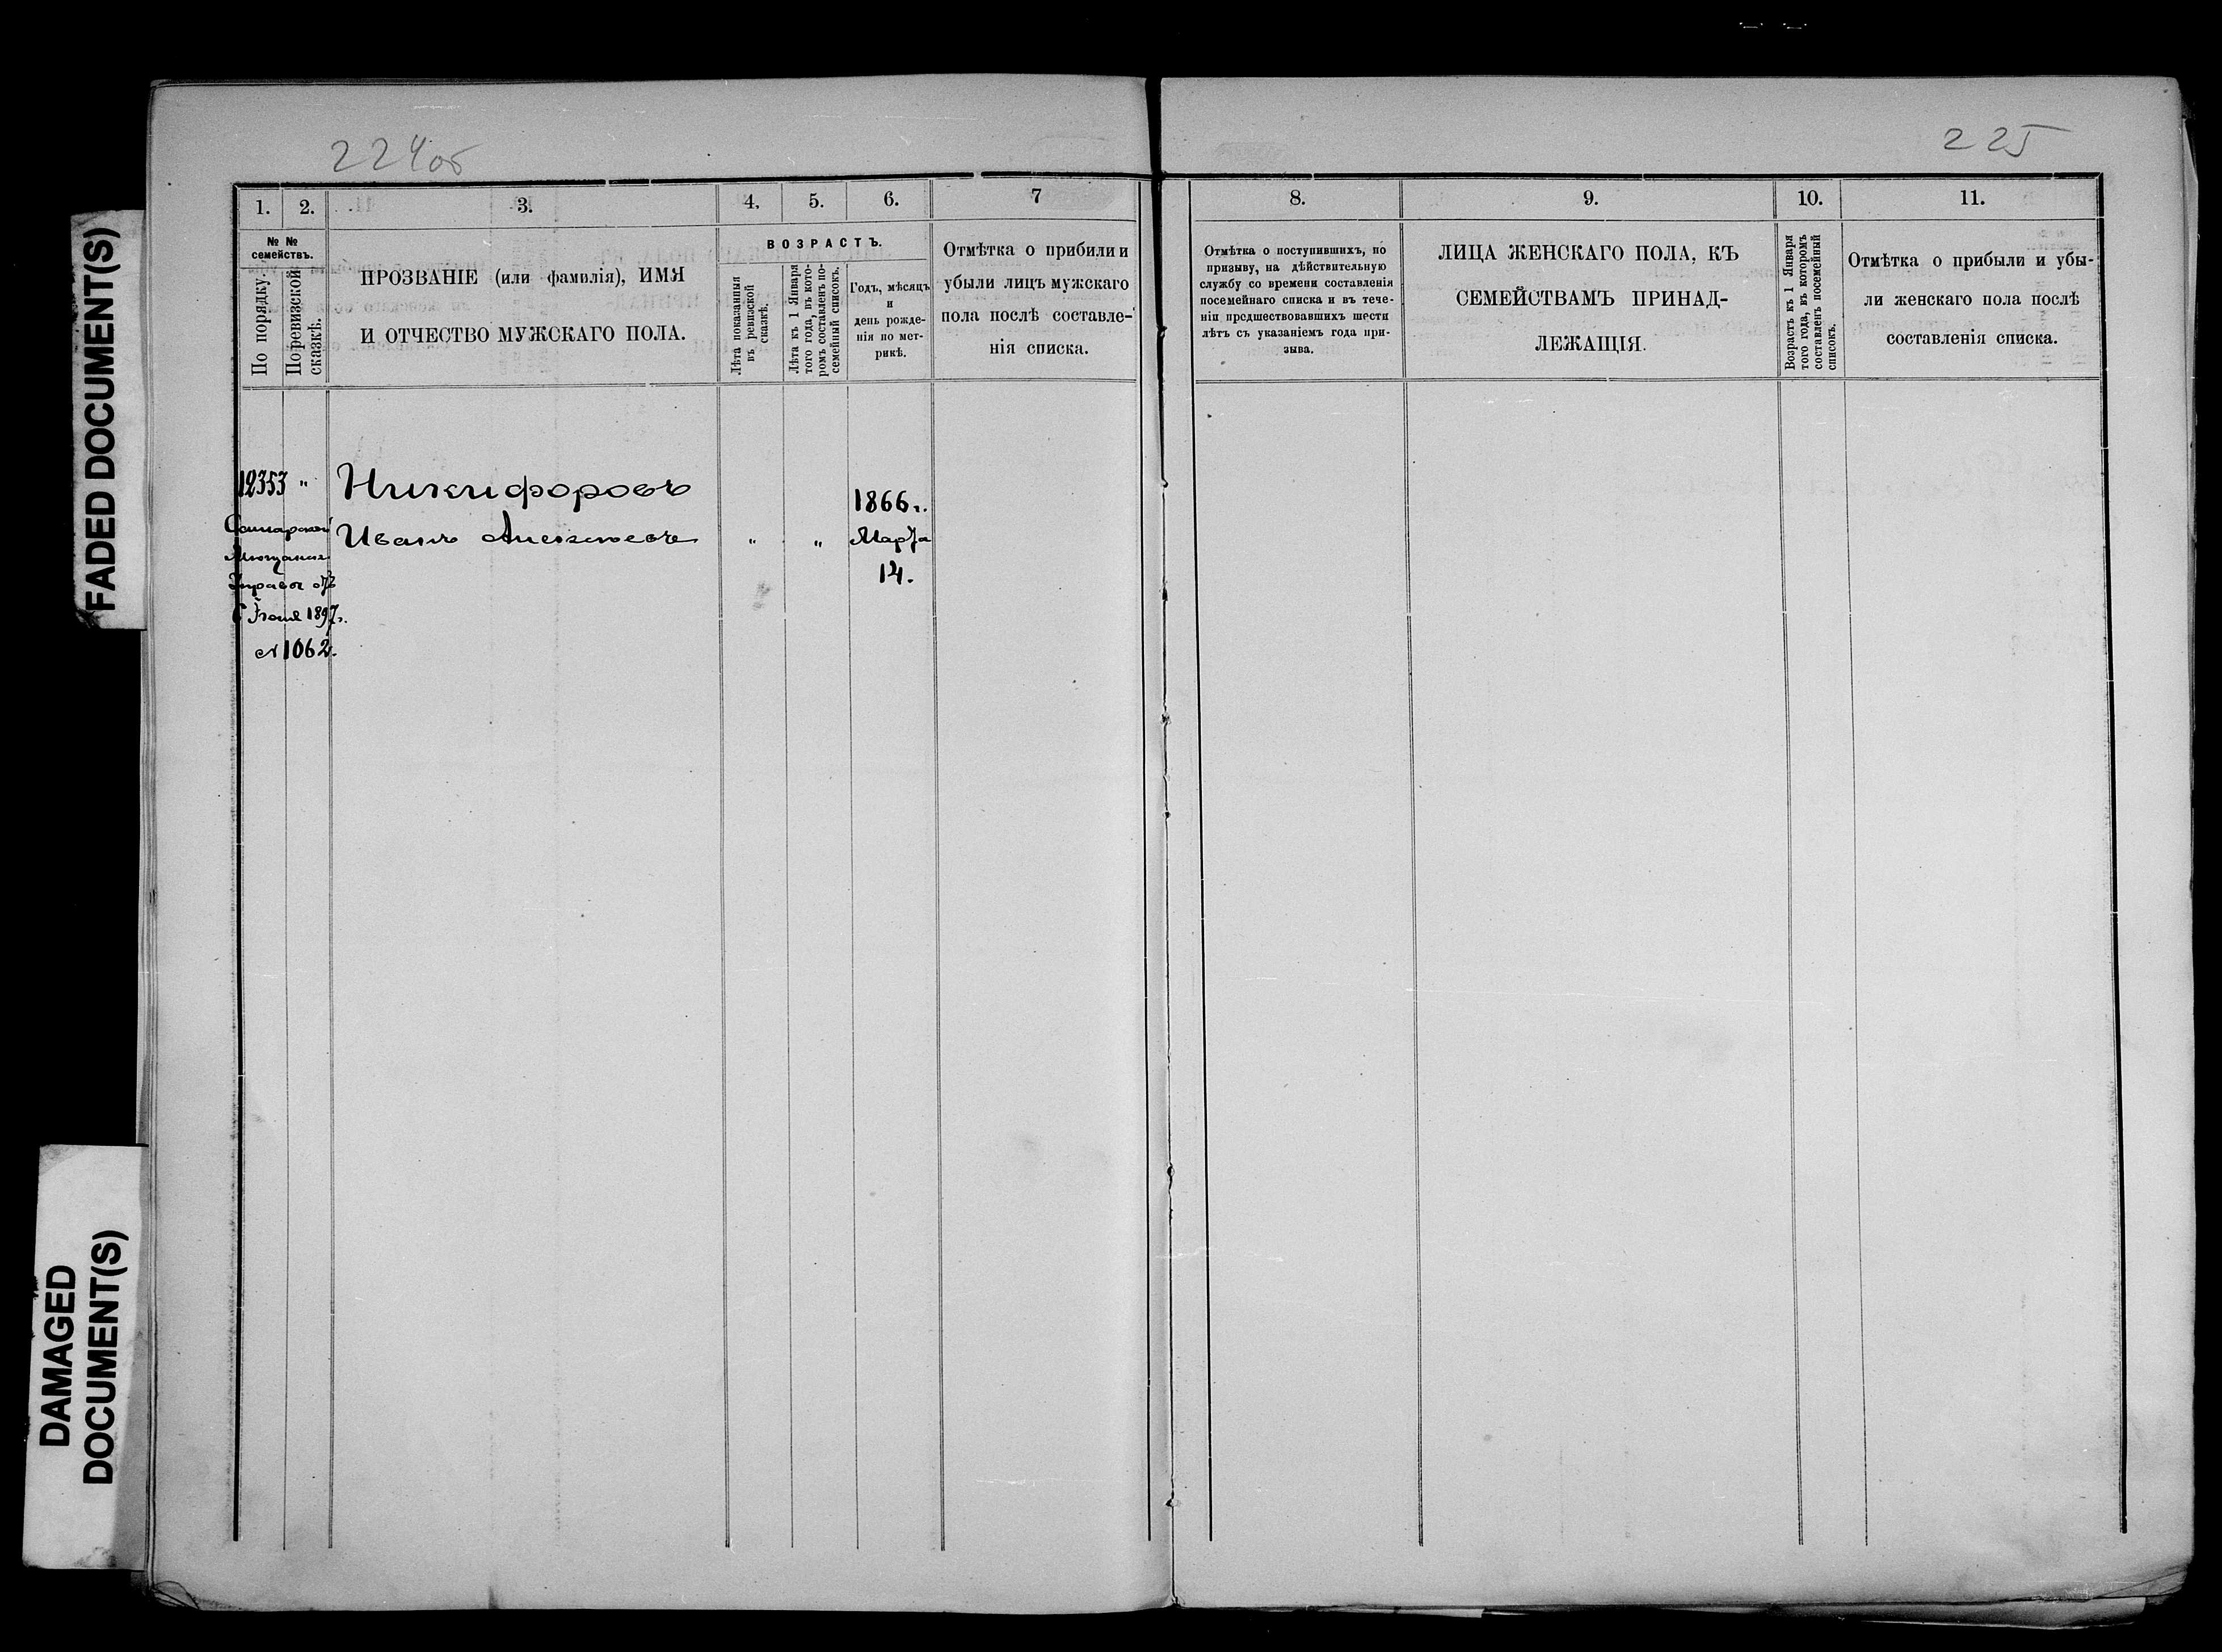 FADED DOCUMENT(S)
DAMAGED
DOCUMENT(S)
224об
1. 2. 3. 4. 5. 6. 7
№ №
семействъ.
По порядку.
По ревизской
сказкѣ.
ПРОЗВАНІЕ (или фамилія), ИМЯ
И ОТЧЕСТВО МУЖСКАГО ПОЛА.
ВОЗРАСТЪ.
Лѣта показанныя
въ ревизской
сказкѣ.
Лѣта къ 1 Января
того года, въ кото-
ромъ составленъ по-
семейный списокъ.
Годъ, мѣсяцъ
и
день рожде-
нія по мет-
рикѣ.
Отмѣтка о прибили и
убыли лицъ мужскаго
пола послѣ составле-
нія списка.
12353 " Никифоровъ
Иванъ Алексѣевъ " "
1866 г.
Марта
14.
Самарской
Мѣщанск
Управы отъ
6 Іюня 1897 г.
№ 1062.
225
8. 9. 10. 11.
Отмѣтка о поступившихъ, по
призыву, на дѣйствительную
службу со времени составленія
посемейнаго списка и въ тече-
ніи предшествовавшихъ шести
лѣтъ съ указаніемъ года при-
зыва.
ЛИЦА ЖЕНСКАГО ПОЛА, КЪ
СЕМЕЙСТВАМЪ ПРИНАД-
ЛЕЖАЩІЯ.
Возрастъ къ 1 Января
того года, въ которомъ
составленъ посемейный
списокъ.
Отмѣтка о прибыли и убы-
ли женскаго пола послѣ
составленія списка.